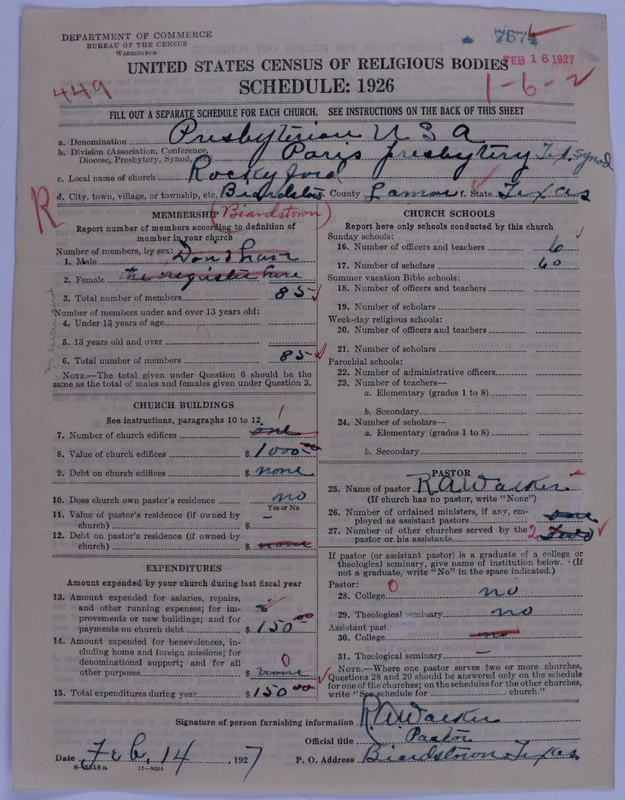 DEPARTMENT OF COMMERCE
BUREAU OF THE CENSUS
WASHINGTON
7674
FEB 16 1927
UNITED STATES CENSUS OF RELIGIOUS BODIES
SCHEDULE: 1926
449
1-6-2
FILL OUT A SEPARATE SCHEDULE FOR EACH CHURCH. SEE INSTRUCTIONS ON THE BACK OF THIS SHEET
a. Denomination Presbyterian U S A
b. Division (Association, Conference, Diocese, Presbytery, Synod, Paris presbytery Tex. Synod
c. Local name of church Rocky ford
d. City, town, village, or township, etc. Biardstown County Lamar f. State Texas
R
MEMBERSHIP (Biardstown)
Report number of members according to definition of
member in your church
Number of members, by sex:
1. Male Don't have
2. Female the register here
3. Total number of members 85
Number of members under and over 13 years old:
4. Under 13 years of age
5. 13 years old and over
6. Total number of members 85
NOTE.—The total given under Question 6 should be the
same as the total of males and females given under Question 3.
CHURCH BUILDINGS
See instructions, paragraphs 10 to 12
1
7. Number of church edifices one
8. Value of church edifices $ 1000.00
9. Debt on church edifices $ none
10. Does church own pastor's residence no
Yes or No
11. Value of pastor's residence (if owned by
church) $ –
12. Debt on pastor's residence (if owned by
church) $ none
EXPENDITURES
Amount expended by your church during last fiscal year
13. Amount expended for salaries, repairs,
and other running expenses; for im-
provements or new buildings; and for
payments on church debt $ 150.00
14. Amount expended for benevolences, in-
cluding home and foreign missions; for
denominational support; and for all
other purposes $ none 0
15. Total expenditures during year $ 150.00
CHURCH SCHOOLS
Report here only schools conducted by this church
Sunday schools:
16. Number of officers and teachers 6
17. Number of scholars 60
Summer vacation Bible schools:
18. Number of officers and teachers
19. Number of scholars
Week-day religious schools:
20. Number of officers and teachers
21. Number of scholars
Parochial schools:
22. Number of administrative officers
23. Number of teachers—
a. Elementary (grades 1 to 8)
b. Secondary
24. Number of scholars—
a. Elementary (grades 1 to 8)
b. Secondary
PASTOR
25. Name of pastor R A Walker
(If church has no pastor, write "None")
26. Number of ordained ministers, if any, em-
ployed as assistant pastors
27. Number of other churches served by the
pastor or his assistants 2 Two
If pastor (or assistant pastor) is a graduate of a college or
theological seminary, give name of institution below. (If
not a graduate, write "No" in the space indicated.)
Pastor: 0
28. College no
29. Theological seminary no
Assistant pastor
30. College no
31. Theological seminary –
NOTE.—Where one pastor serves two or more churches,
Questions 28 and 29 should be answered only on the schedule
for one of the churches; on the schedules for the other churches,
write "See schedule for church."
Signature of person furnishing information R A Walker
Official title Pastor
Date Feb, 14, 1927 P. O. Address Biardstown Texas
8-5518 a 11—9054